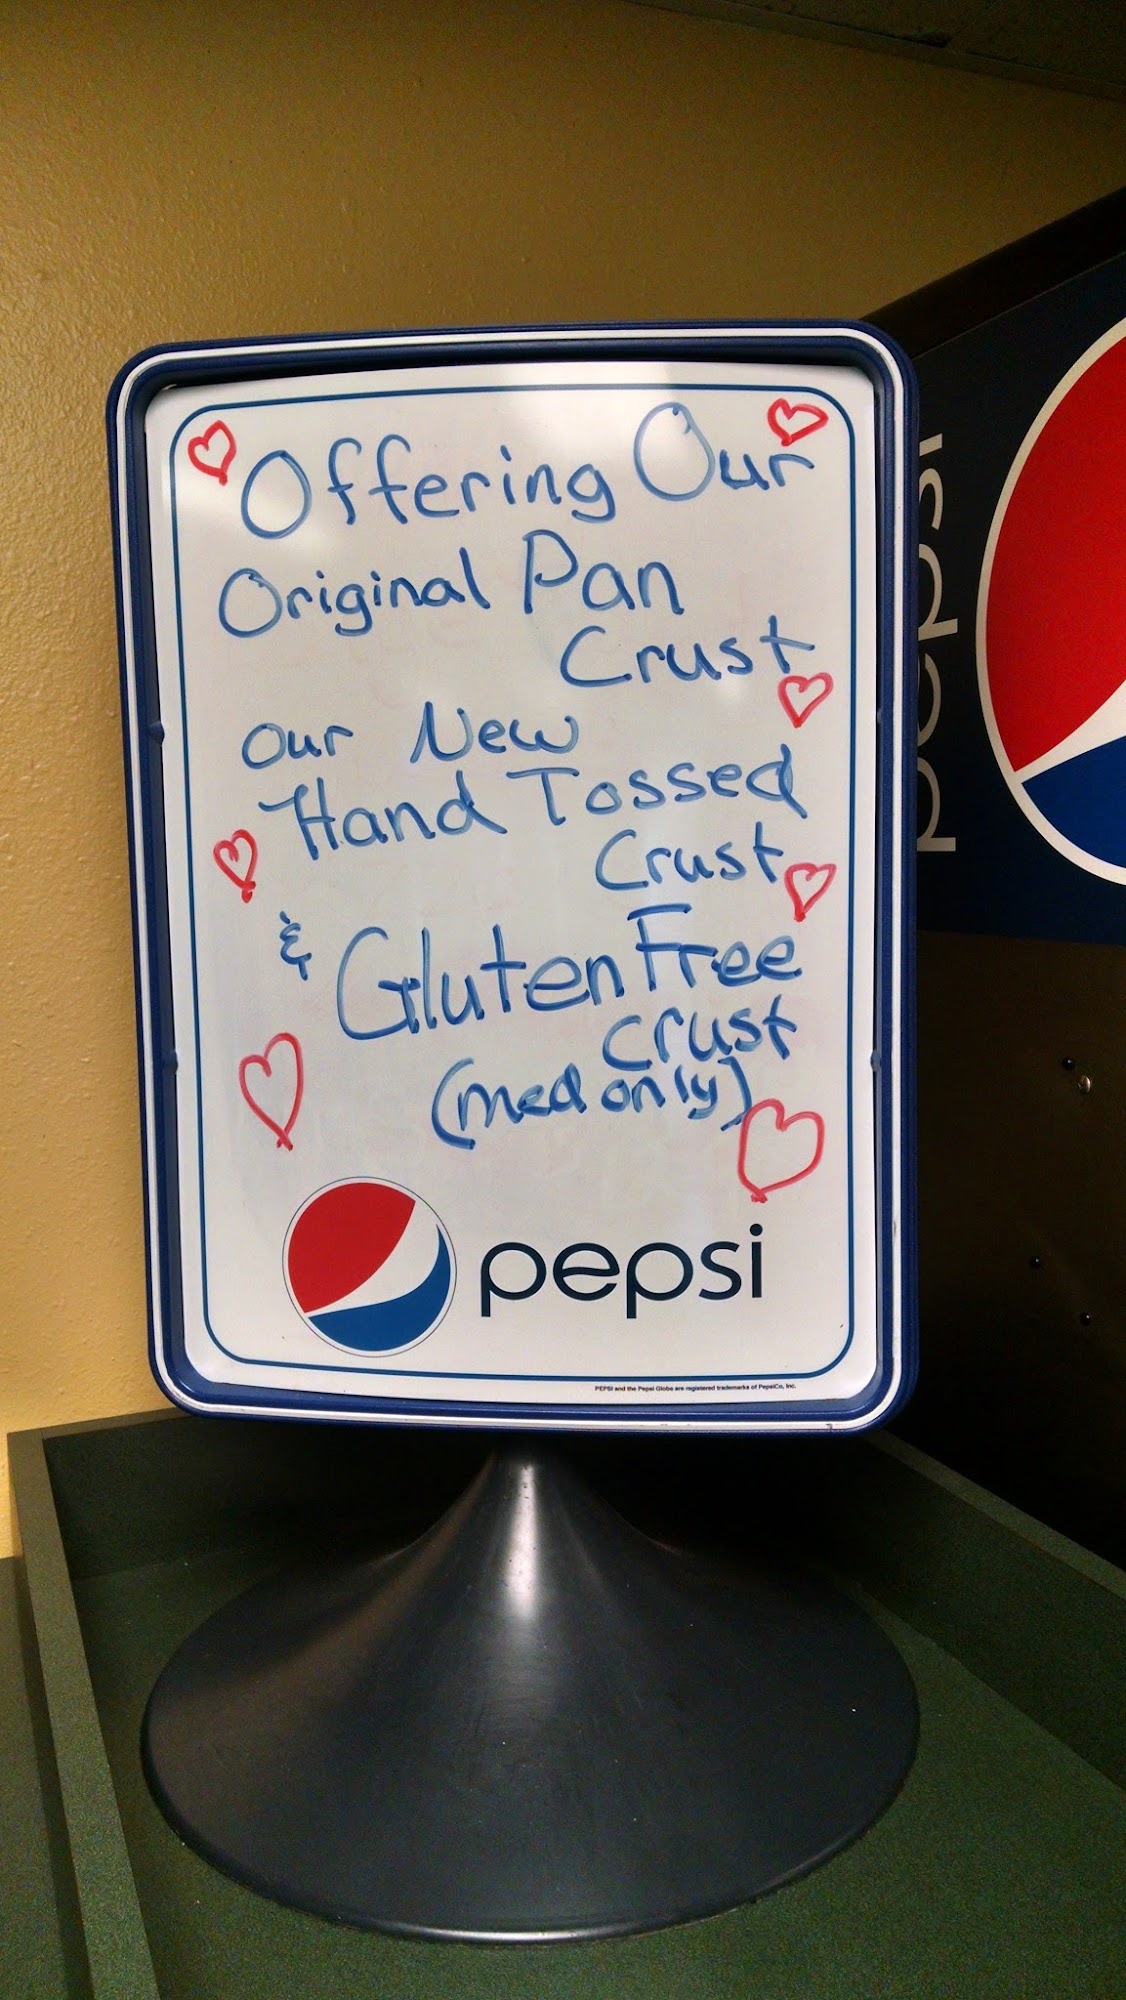 Offering Our
Original Pan
Crust
our New
Hand Tossed
Crust
& Gluten Free
crust
(med only)
pepsi
PEPSI and the Pepsi Globe are registered trademarks of PepsiCo, Inc.
pepsi